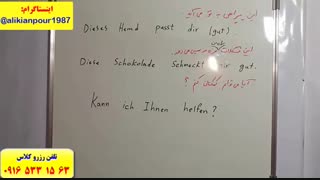 اینستاگرام:
@alikianpour1987
این پیراهن به تو می آید
Dieses Hemd passt dir (gut)
این شکلات
Diese Schokolade Schmeckt mir gut.
آیا می توانم کمکتان کنم ؟
Kann ich Ihnen helfen?
تلفن رزرو کلاس
۰۹۱۶ ۵۳۳ ۱۵ ۶۳